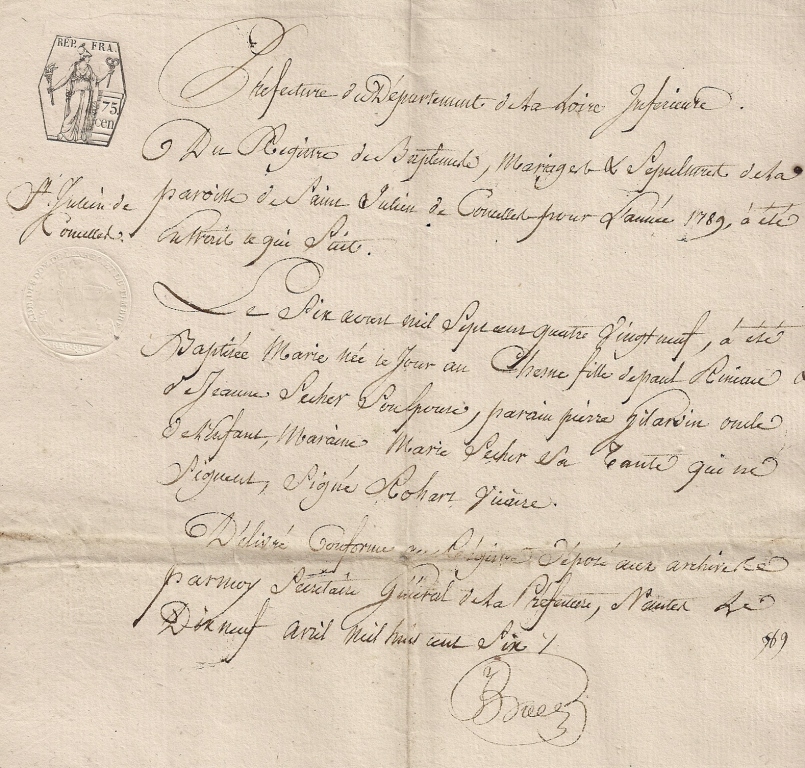 RÉP. FRA.
75
cen
Préfecture du Département de La Loire Inferieure.
Du Registre de Baptemes, Mariages & Sépultures de La
St. Julien de
Concelles.
paroisse de Saint Julien de Concelles pour L'année 1789, à été
Extrait ce qui Suit.
Le Six avril mil Sept cent quatre Vingt neuf, à été
Baptisée Marie née ce Jour au Chesne fille de paul Rineau &
de Jeanne Pecher Son Epouse, parain pierre Gilardin oncle
de L'enfant, Maraine Marie Pecher Sa Tante qui ne
Signent, Signé Rohart Vicaire.
Délivré Conforme au Régistre déposé aux archives
par moy Secrétaire Général de La Préfecture, Nantes Le
Dix neuf avril mil huit cent Six /.